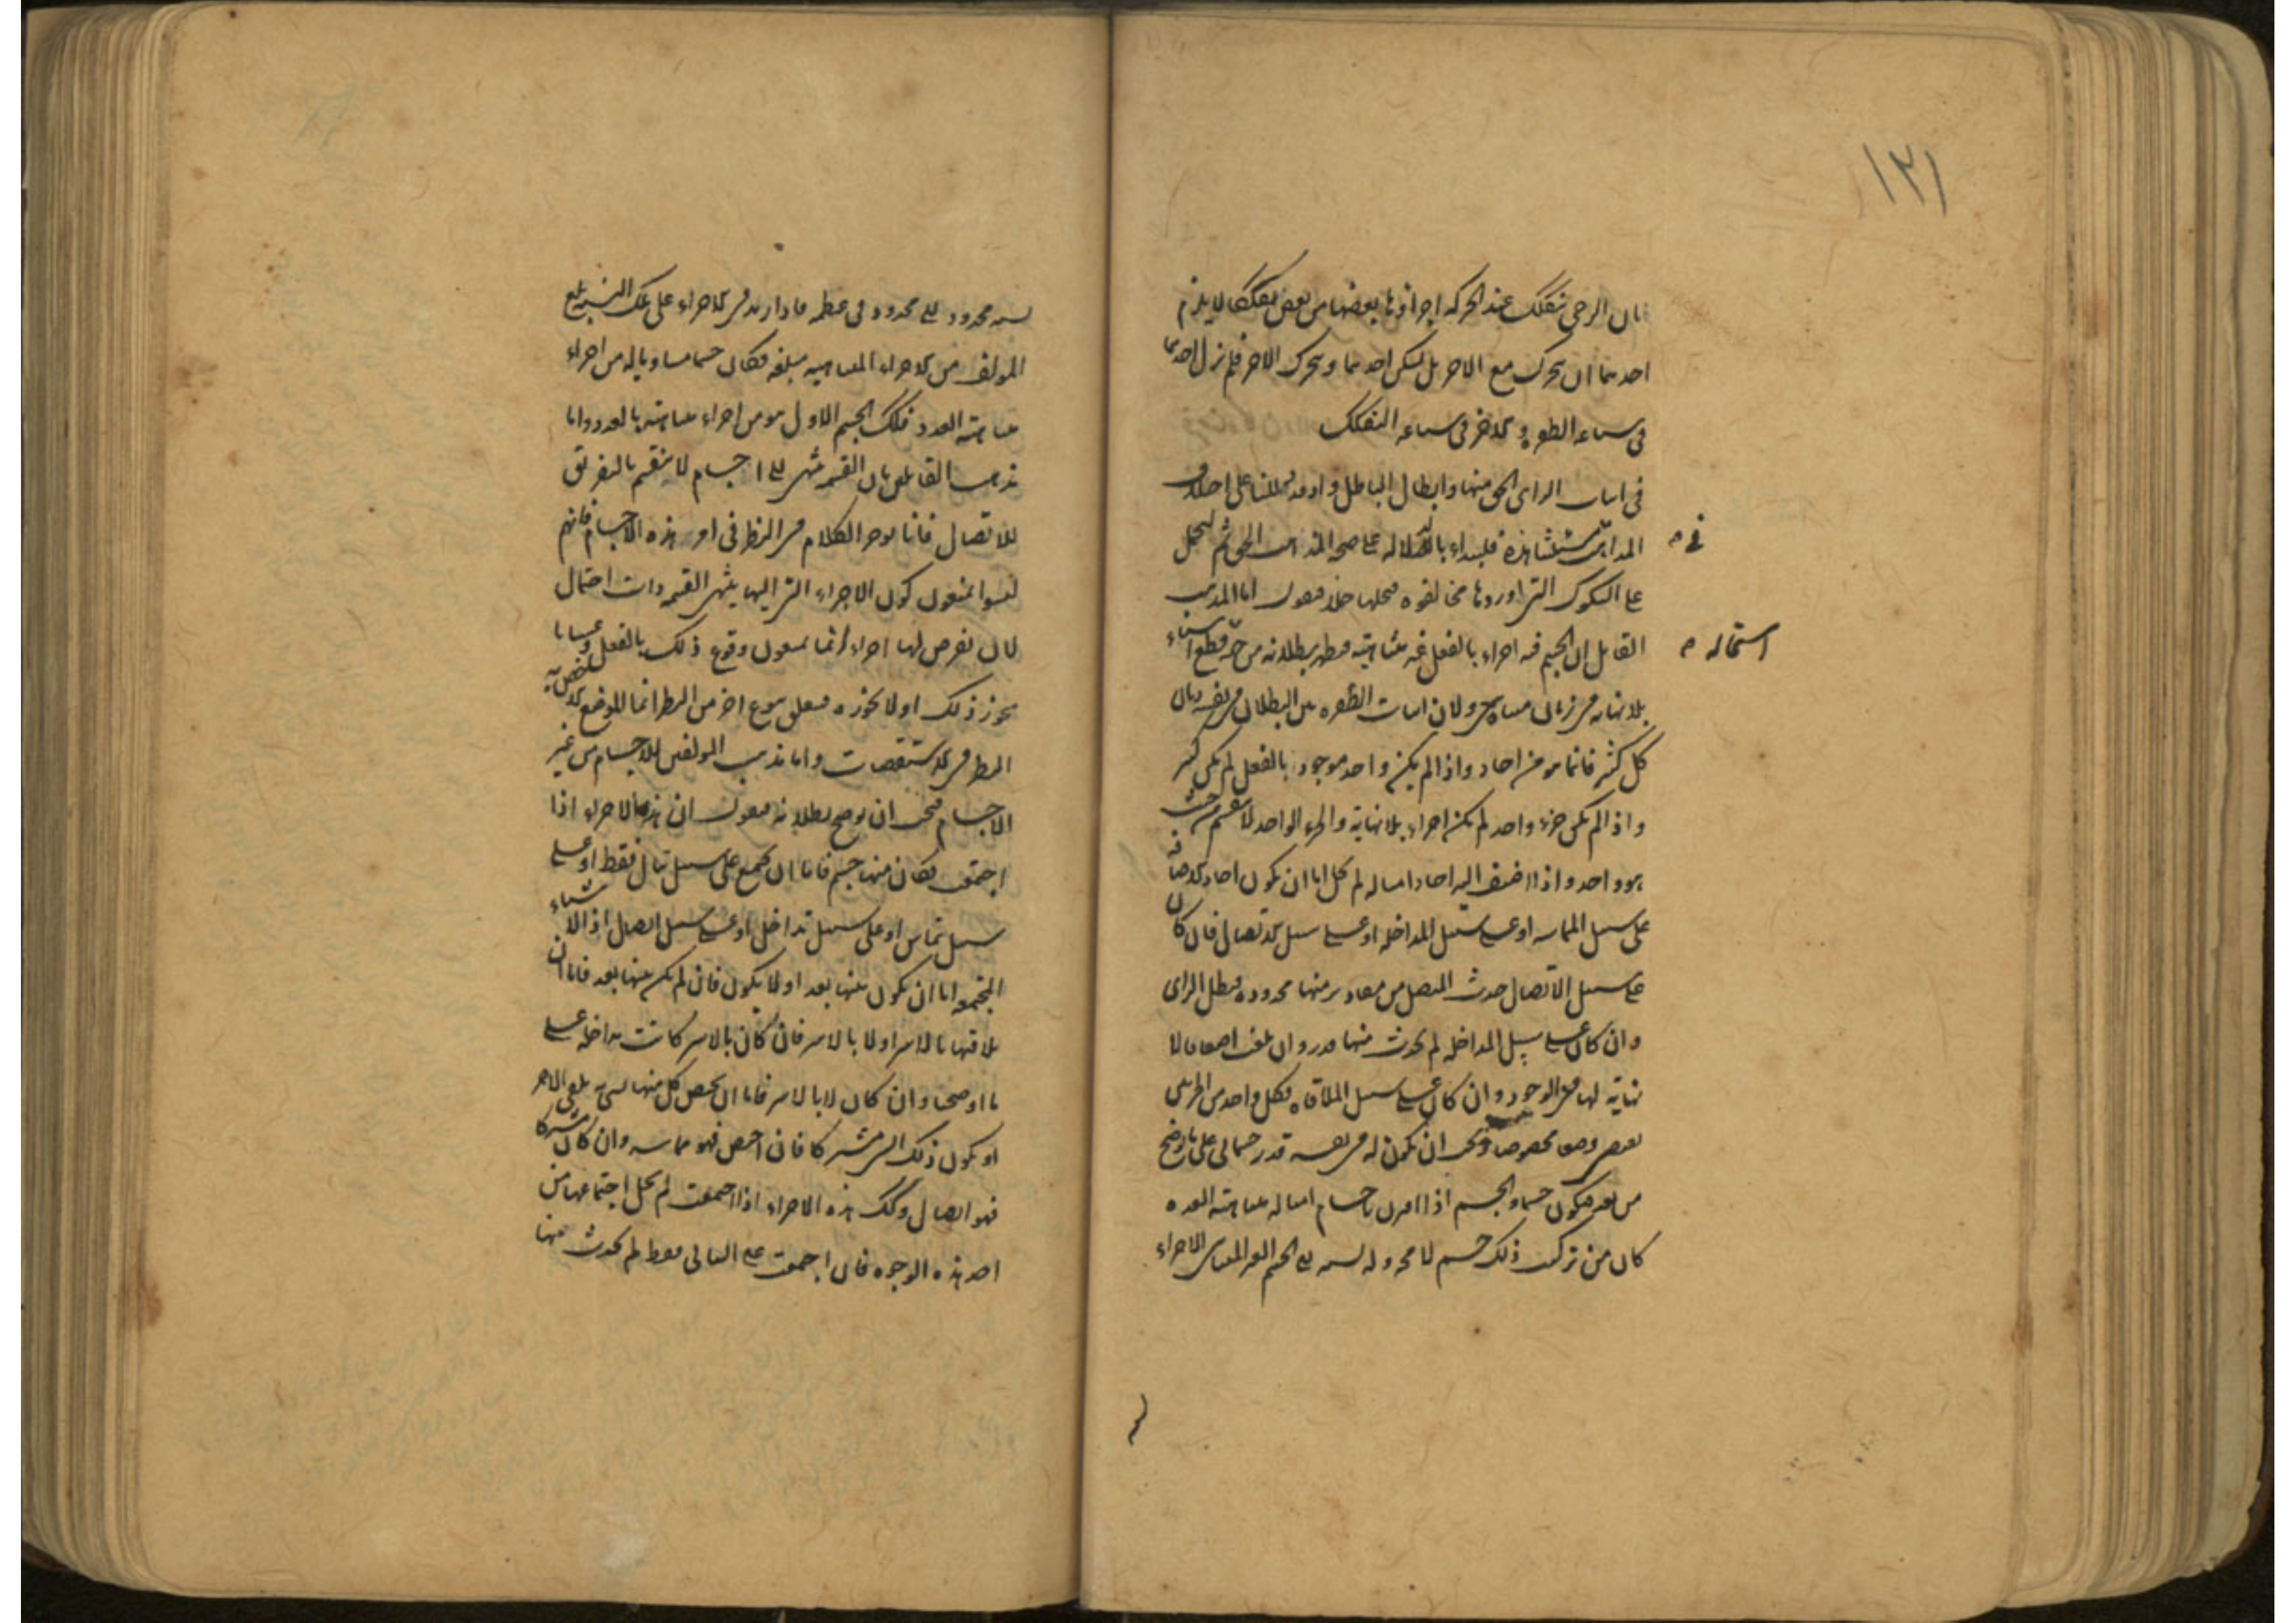 ١٣١
بان الرحى تتفكك عند الحركة اجزاؤها بعضها من بعض تفككا لا يلزم
احدهما ان يتحرك مع الاخر بل يسكن احدهما ويتحرك الاخر فلم يزل احدهما
فى شناعة الطفرة والاخر فى شناعة التفكك
فى اثبات الراى الحق منها وابطال الباطل واذ قد دللنا على اختلاف
المذاهب فى مسئلتنا هذه فلنبداء بالدلالة على صحة المذهب الحق ثم لنحمل
فى
على الشكوك التى اوردها مخالفوه فنحلها حلا فنقول اما المذهب
القائل ان الجسم فيه اجزاء بالفعل غير متناهية فيظهر بطلانه من جهة قطع اشياء
استحالة
بلا نهاية فى زمان متناه ولان اثبات الطفرة بين البطلان فى نفسه وبان
كل كثرة فانما هو من احاد واذا لم يكن واحد موجود بالفعل لم يكن كثير
واذا لم يكن جزء واحد لم يكن اجزاء بلا نهاية والجزء الواحد لا ينقسم من حيث
هو واحد واذا اضيف اليه احاد امثاله لم يخل اما ان يكون احاد الاضافة
على سبيل المماسة او على سبيل المداخلة او على سبيل الاتصال فان كان
على سبيل الاتصال حدث المتصل من مقادير منها محدودة فبطل الراى
وان كان على سبيل المداخلة لم يحدث منها قدر وان بلغت اضعافا لا
نهاية لها فى الوجود وان كان على سبيل الملاقاة فكل واحد من الجزئين
يقتضى وضعا مخصوصا ويجب ان يكون له فى نفسه قدر جسمانى على ما يوضح
من بعد فيكون جسما والجسم اذا اقرن باجسام امثاله متناهية العدة
كان من تركيب ذلك جسم لا محة وله نسبة الى الجسم الغير المتناهى الاجزاء
نسبة محدود الى محدود فى عظمه فاذا زيد فى الاجزاء على تلك النسبة بلغ
المولف من الاجزاء المتناهية مبلغه فكان جسما مساويا له من اجزاء
متناهية العدد فذلك الجسم الاول هو من اجزاء متناهية بالعدد واما
مذهب القائلين بان القسمة تنتهى الى اجسام لا ينقسم بالتفريق
للاتصال فانا نوخر الكلام فى النظر فى امر هذه الاجسام فانهم
ليسوا يمنعون كون الاجزاء التى اليها ينتهى القسمة ذات احتمال
لان نفرض لها اجزاء انما يمنعون وقوع ذلك بالفعل وعسانا
نجوز ذلك او لا نجوزه فيتعلق بنوع اخر من النظر انما الموضع الاخص به
النظر فى الاستقصات واما مذهب المولفين للاجسام من غير
الاجسام فيجب ان نوضح بطلانه فنقول ان هذه الاجزاء اذا
اجتمعت فكان منها جسم فاما ان تجتمع على سبيل تتال فقط او على
سبيل تماس او على سبيل تداخل او على سبيل اتصال اذ الاشياء
المجتمعة اما ان يكون بينها بعد او لا يكون فان لم يكن بينها بعد فاما ان
تلاقيها بالاسر او لا بالاسر فان كان بالاسر كانت مداخلة على
ما اوضحنا وان كان لا بالاسر فاما ان يختص كل منها بشئ يلقى به الاخر
او يكون ذلك الشئ مشتركا فان اختص فهو مماسة وان كان مشتركا
فهو اتصال وكك هذه الاجزاء اذا اجتمعت لم يخل اجتماعها من
احد هذه الوجوه فان اجتمعت على التتالى فقط لم يحدث منها